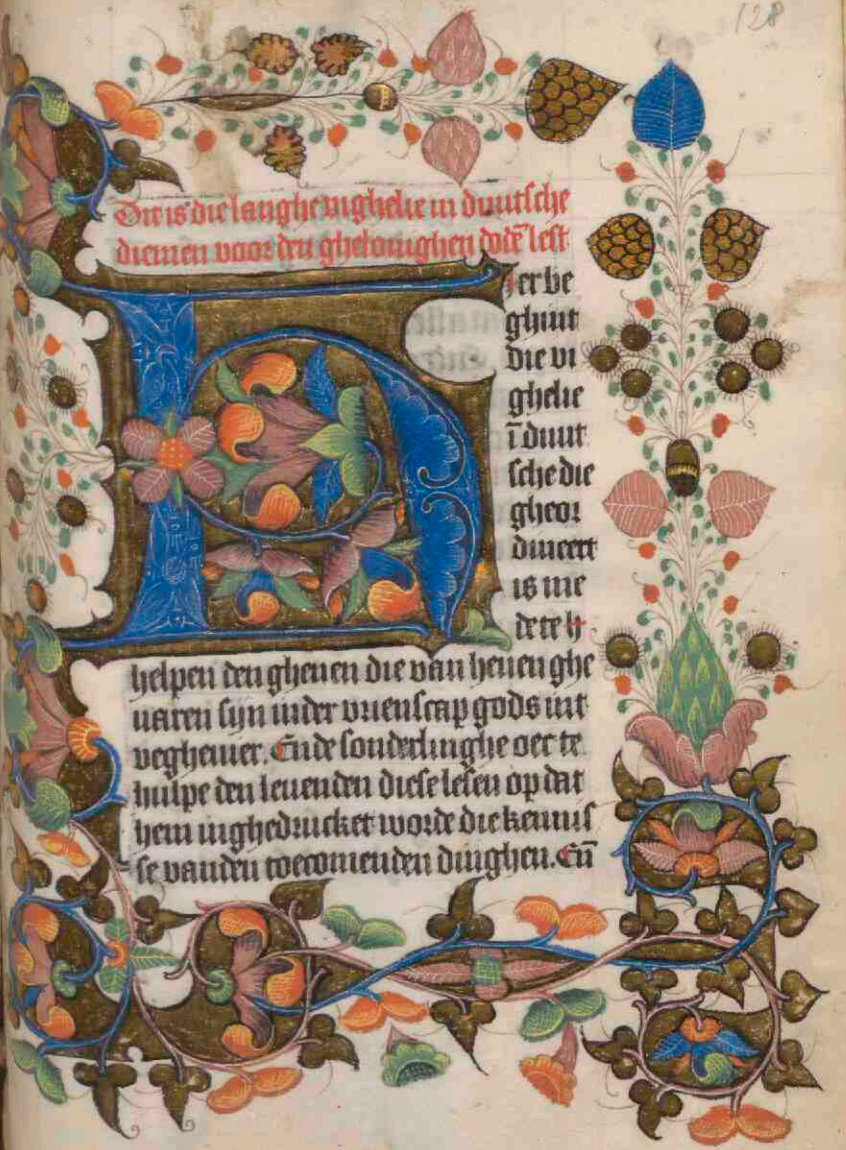 128
Dit is die langhe vighelie in duutsche
diemen voor den ghelouighen dotē lest
Hier be
ghint
die vi
ghelie
ī duut
sche die
gheor
dineert
is me
de te h
helpen den ghenen die van henen ghe
uaren sijn in der vrienscap gods int
vegheuier. Ende sonderlinghe oec te
hulpe den leuenden diese lesen op dat
hem inghedrucket worde die kennis
se vanden toecomenden dinghen. Eñ